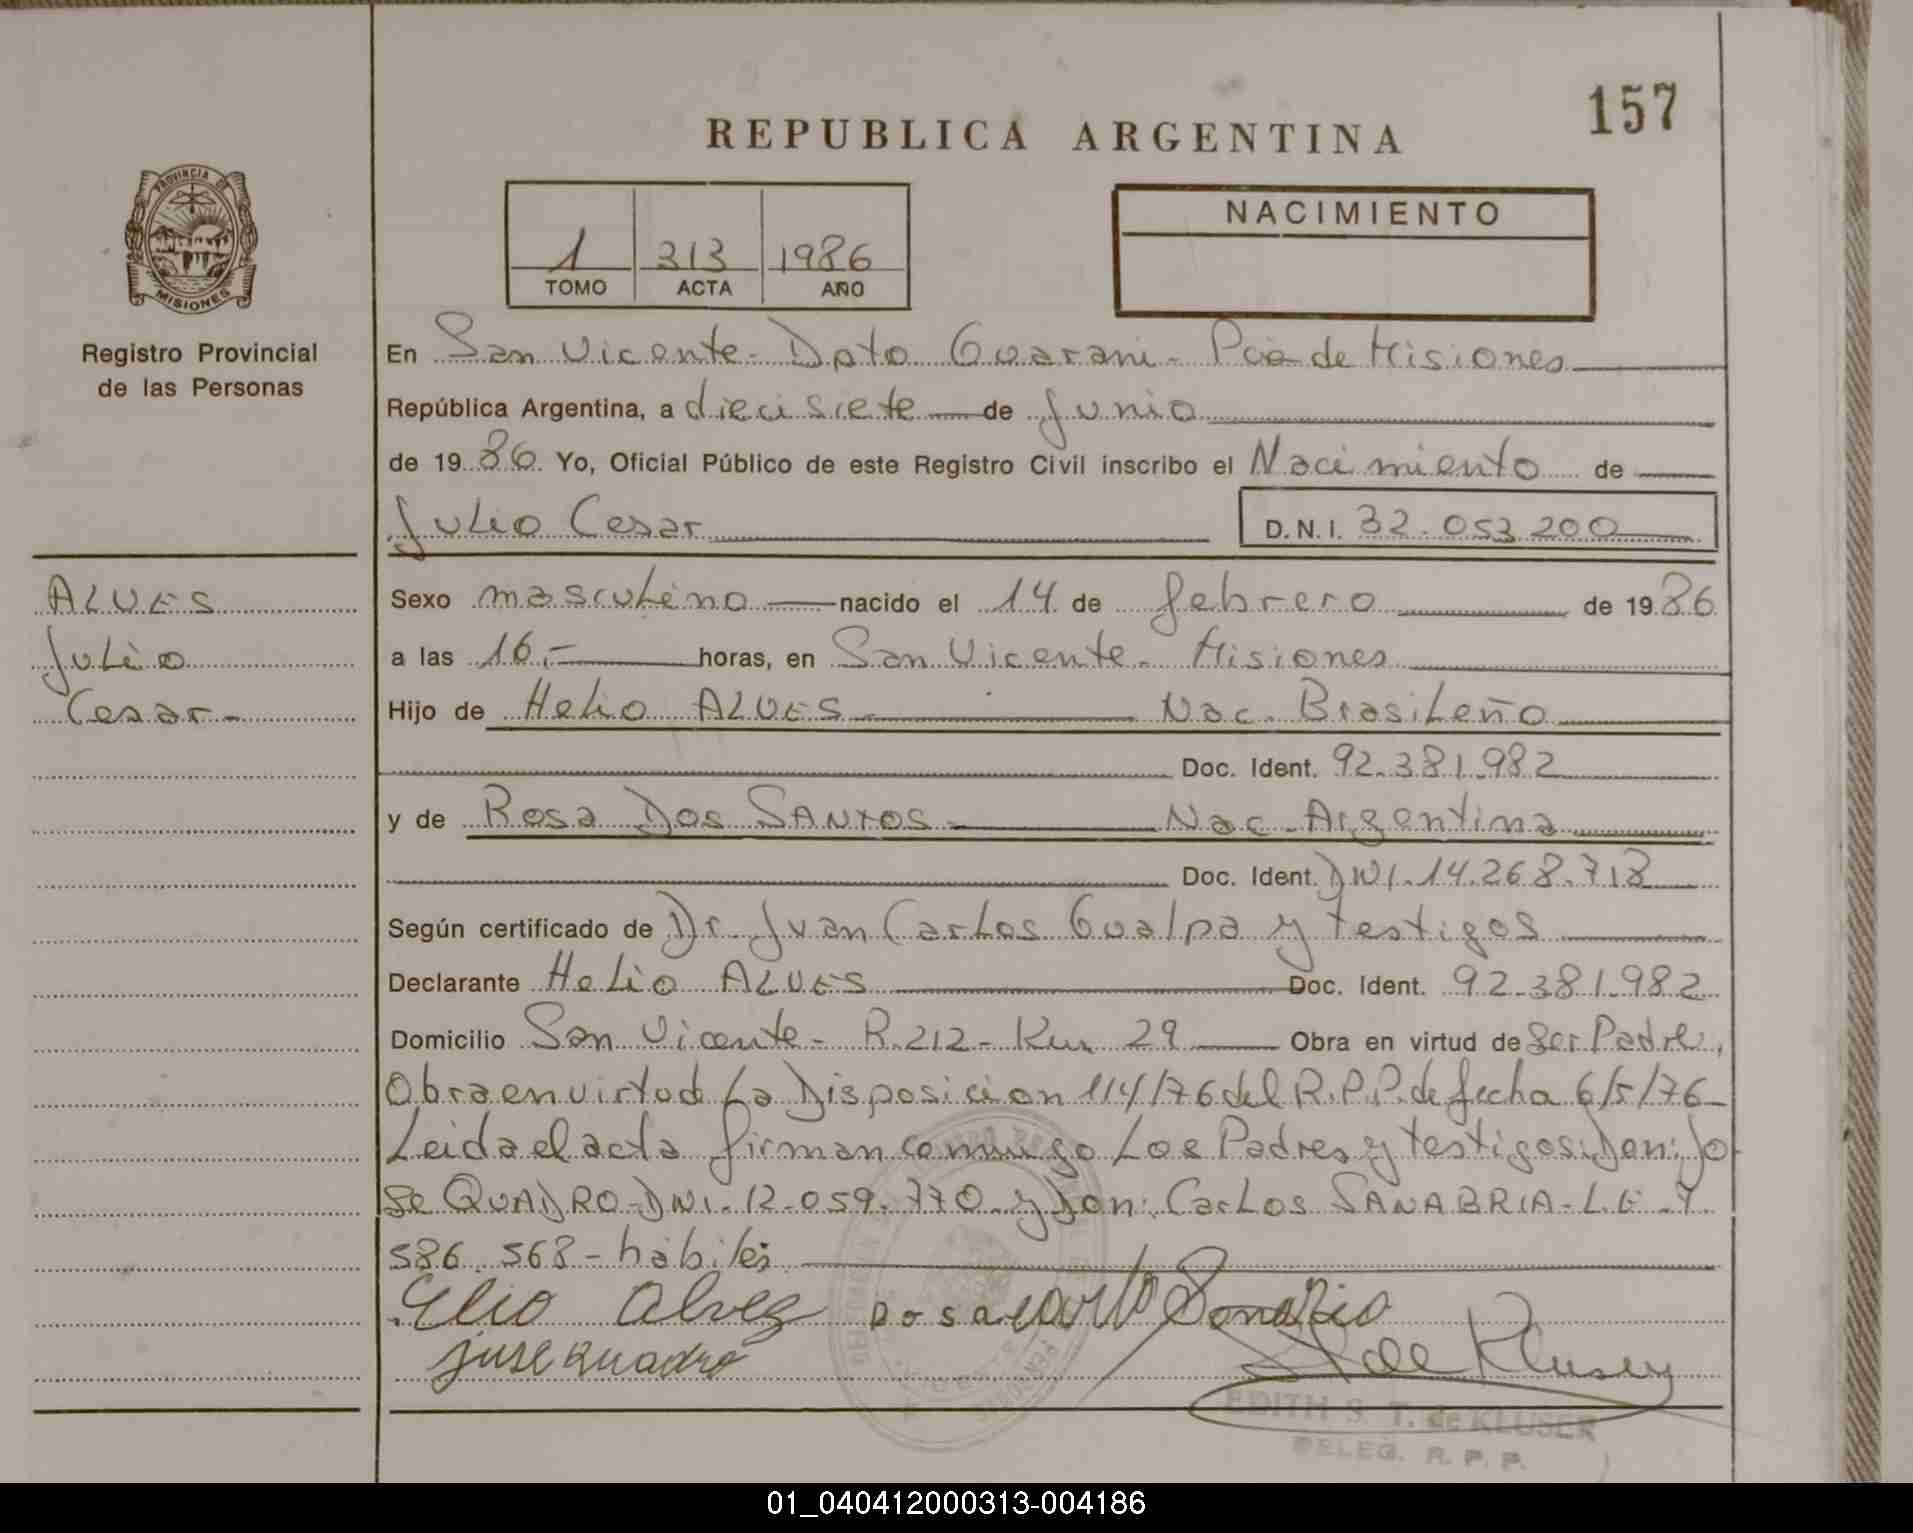 157
REPUBLICA ARGENTINA
PROVINCIA DE
MISIONES
Registro Provincial
de las Personas
1 313 1986
TOMO ACTA AÑO
NACIMIENTO
En San Vicente - Dpto Guarani - Pcia de Misiones
República Argentina, a diecisiete de Junio
de 1986 Yo, Oficial Público de este Registro Civil inscribo el Nacimiento de
Julio Cesar D.N.I. 32.053.200
ALVES
Julio
Cesar -
Sexo masculino nacido el 14 de febrero de 1986
a las 16.- horas, en San Vicente - Misiones
Hijo de Helio ALVES Nac. Brasileño
Doc. Ident. 92.381.982
y de Rosa Dos SANTOS - Nac. Argentina
Doc. Ident. DNI. 14.268.718
Según certificado de Dr. Juan Carlos Gualpa y testigos
Declarante Helio ALVES Doc. Ident. 92.381.982
Domicilio San Vicente - R.212 - Km 29 Obra en virtud de Ser Padre,
Obra en virtud La Disposicion 114/76 del R.P.P. de fecha 6/5/76 -
Leida el acta firman conmigo Los Padres y testigos: Don: Jo
se QUADRO - DNI. 12.059.770 y Don: Carlos SANABRIA - L.E. 7.
586.568 - hábiles
Elio Alvez Rosa
jose quadro de Kluser
EDITH S. T. de KLUSER
DELEG. R. P. P.
01_040412000313-004186